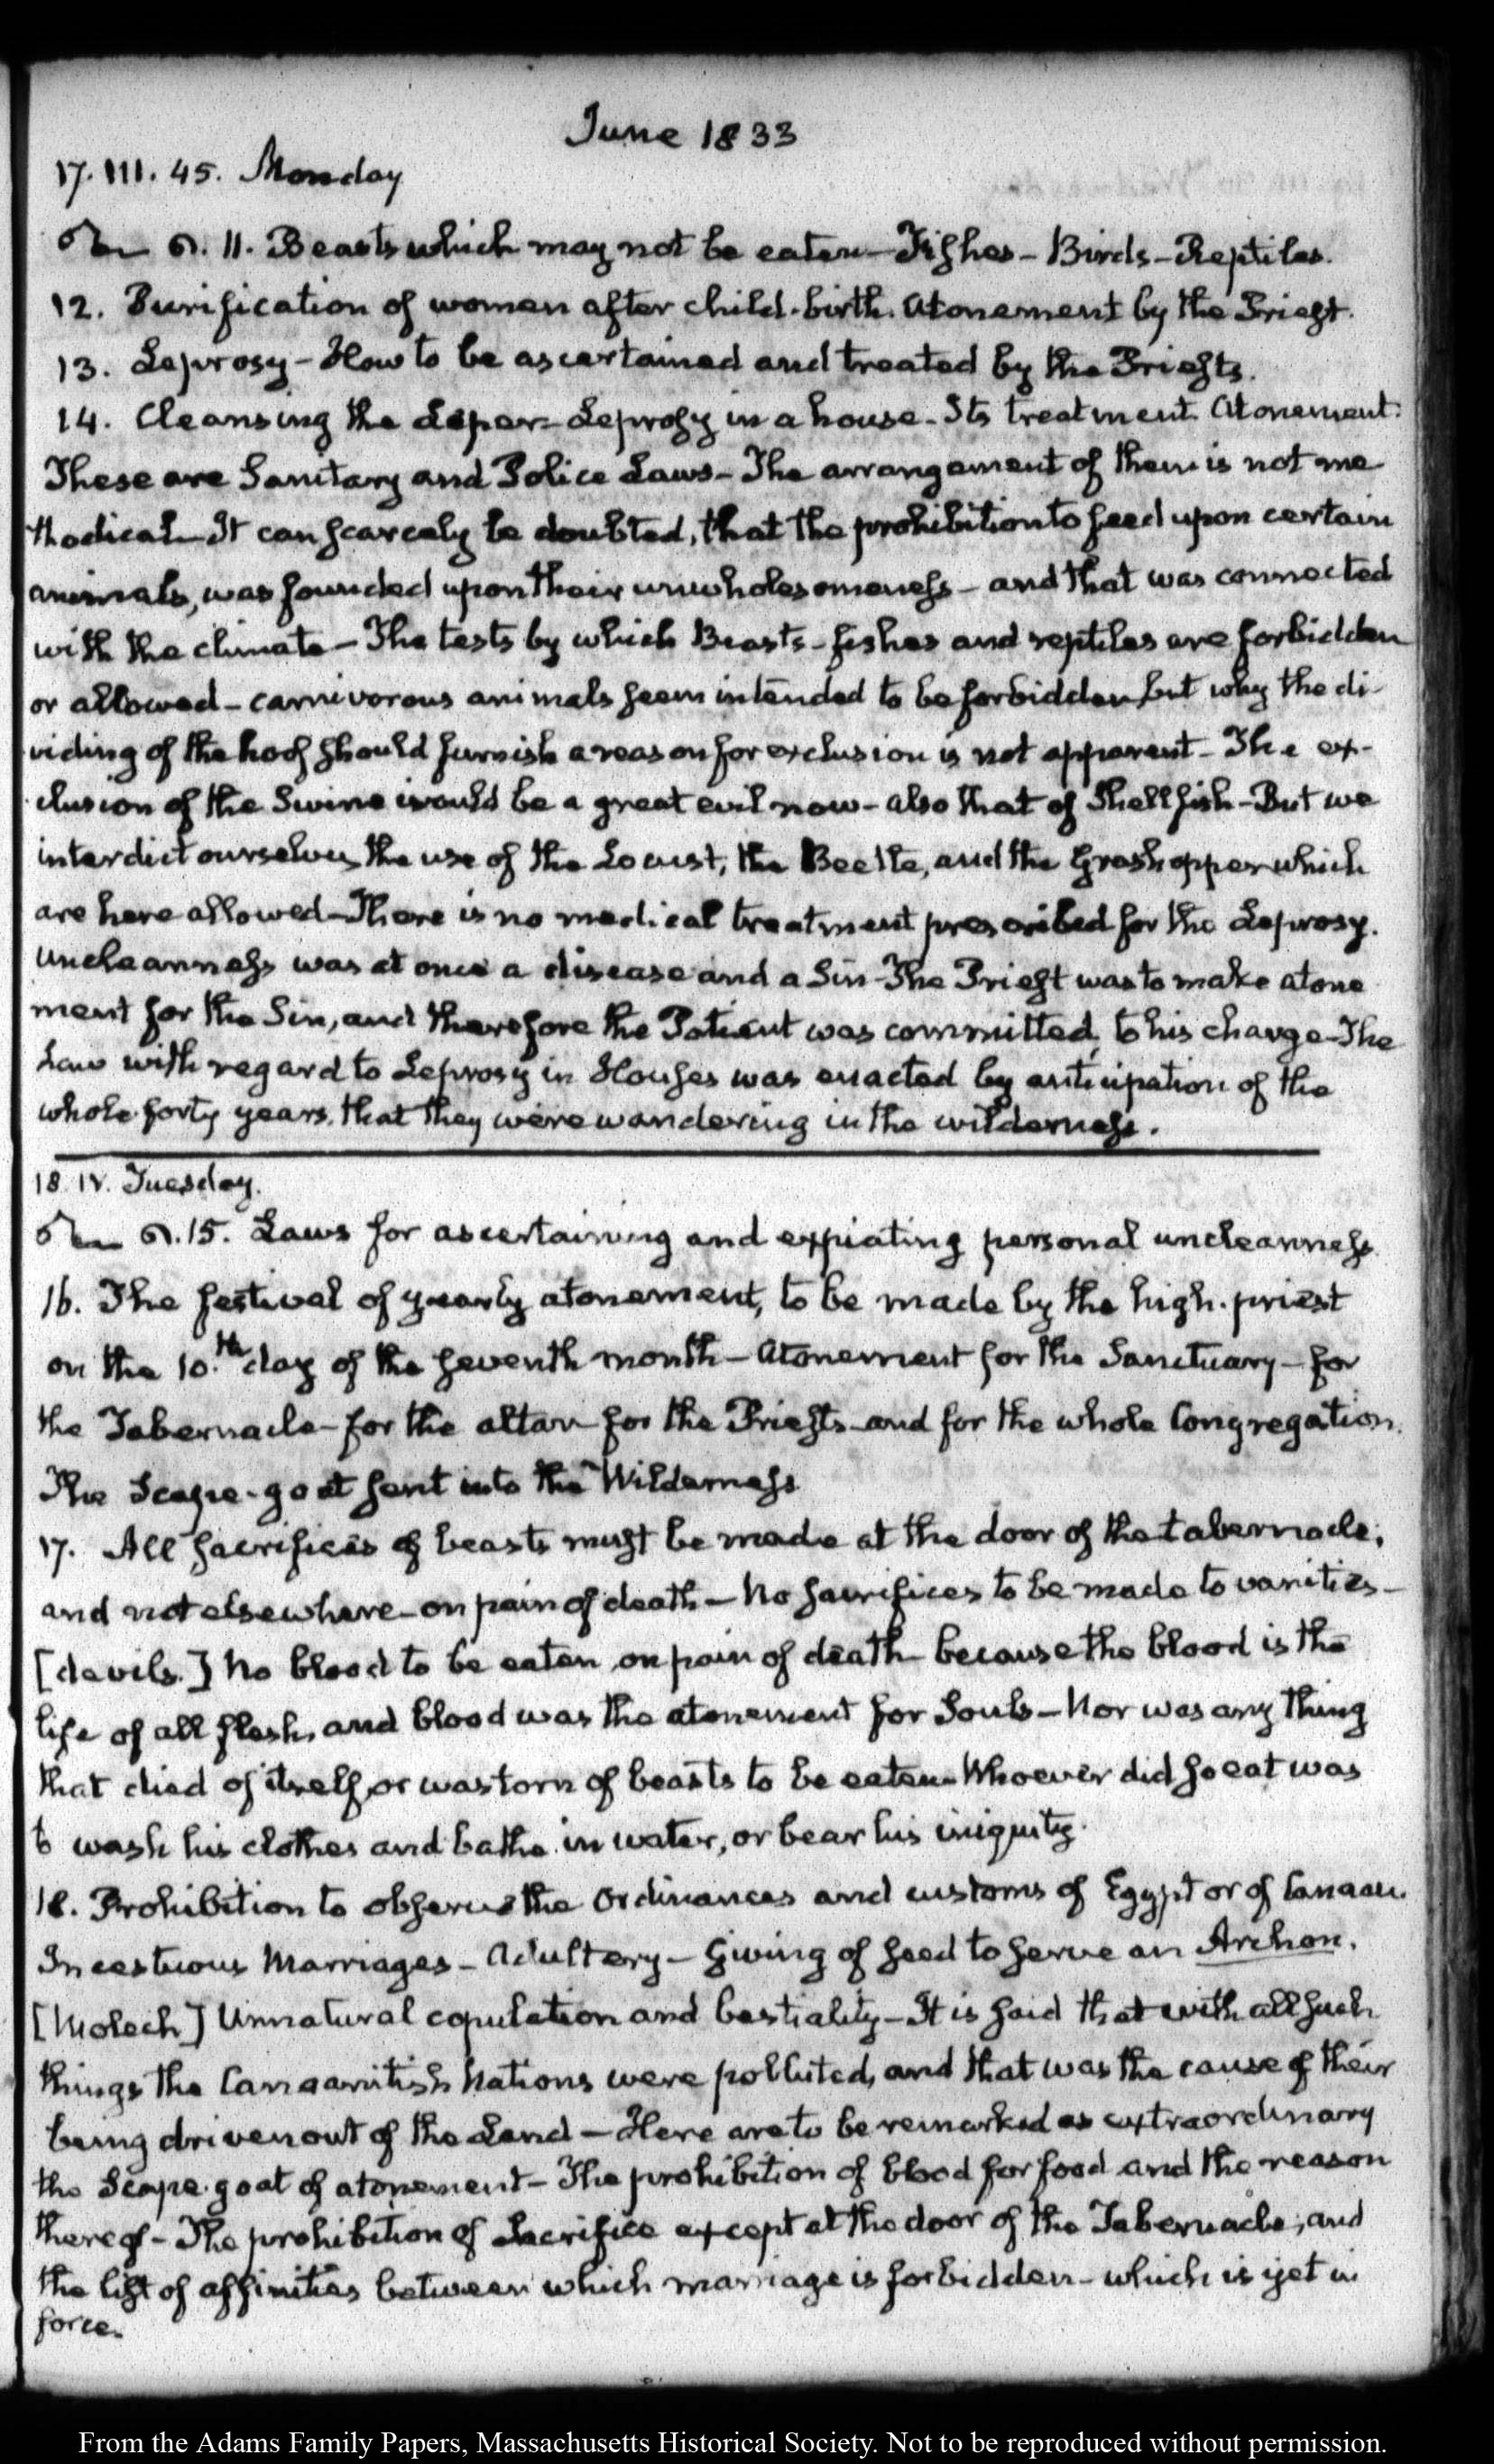 June 1833
17. III. 45. Monday
11. Beasts which may not be eaten - Fishes - Birds - Reptiles.
12. Purification of women after child-birth. Atonement by the Priest.
13. Leprosy - How to be ascertained and treated by the Priests.
14. Cleansing the Leper - Leprosy in a house - Its treatment. Atonement.
These are Sanitary and Police Laws - The arrangement of them is not me
thodical - It can scarcely be doubted, that the prohibition to feed upon certain
animals, was founded upon their unwholesomeness - and that was connected
with the climate - The tests by which Beasts - fishes and reptiles are forbidden
or allowed - carnivorous animals seem intended to be forbidden, but why the di-
viding of the hoof should furnish a reason for exclusion is not apparent - The ex-
clusion of the Swine would be a great evil now - also that of Shell fish - But we
interdict ourselves the use of the Locust, the Beetle, and the Grasshopper which
are here allowed - There is no medical treatment prescribed for the Leprosy.
Uncleanness was at once a disease and a Sin - The Priest was to make atone
ment for the Sin, and therefore the Patient was committed to his charge - The
Law with regard to Leprosy in Houses was enacted by anticipation of the
whole forty years, that they were wandering in the wilderness.
18. IV. Tuesday.
15. Laws for ascertaining and expiating personal uncleanness
16. The festival of yearly atonement, to be made by the high-priest
on the 10.th day of the seventh month - Atonement for the Sanctuary - for
the Tabernacle - for the altar - for the Priests - and for the whole Congregation.
The Scape-goat sent into the Wilderness
17. All sacrifices of beasts must be made at the door of the tabernacle;
and not elsewhere - on pain of death - No sacrifices to be made to vanities -
[devils.] No blood to be eaten, on pain of death - because the blood is the
life of all flesh, and blood was the atonement for Souls - Nor was any thing
that died of itself, or was torn of beasts to be eaten - Whoever did so eat was
to wash his clothes and bathe in water, or bear his iniquity.
18. Prohibition to observe the Ordinances and customs of Egypt or of Canaan.
Incestuous Marriages - Adultery - Giving of seed to serve an Archon.
[Molech] Unnatural copulation and bestiality - It is said that with all such
things the Canaanitish Nations were polluted, and that was the cause of their
being driven out of the Land - Here are to be remarked as extraordinary
the Scape-goat of atonement - The prohibition of blood for food and the reason
thereof - The prohibition of Sacrifice except at the door of the Tabernacle; and
the list of affinities between which marriage is forbidden - which is yet in
force.
From the Adams Family Papers, Massachusetts Historical Society. Not to be reproduced without permission.